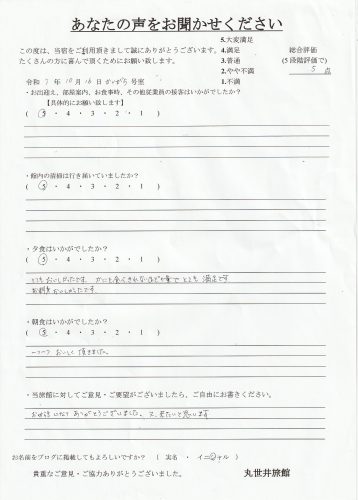 あなたの声をお聞かせください
この度は、当宿をご利用頂きまして誠にありがとうございます。
たくさんの方に喜んで頂くためにお願い致します。
5.大変満足
4.満足
3.普通
2.やや不満
1.不満
総合評価
(5段階評価で)
5 点
令和 7 年 10 月 16 日 号室
・お出迎え、部屋案内、お食事時、その他従業員の接客はいかがでしたか？
【具体的にお願い致します】
( 5 ・ 4 ・ 3 ・ 2 ・ 1 )
・館内の清掃は行き届いていましたか？
( 5 ・ 4 ・ 3 ・ 2 ・ 1 )
・夕食はいかがでしたか？
( 5 ・ 4 ・ 3 ・ 2 ・ 1 )
おいしかったです。 カニも食べきれないほどの量で とても 満足です
お刺身おいしかったです。
・朝食はいかがでしたか？
( 5 ・ 4 ・ 3 ・ 2 ・ 1 )
おいしく 頂きました。
・当旅館に対してご意見・ご要望がございましたら、ご自由にお書きください。
お世話になり ありがとうございました。 又、来たいと思います
お名前をブログに掲載してもよろしいですか？ ( 実名 ・ イニシャル )
貴重なご意見・ご協力ありがとうございました。
丸世井旅館